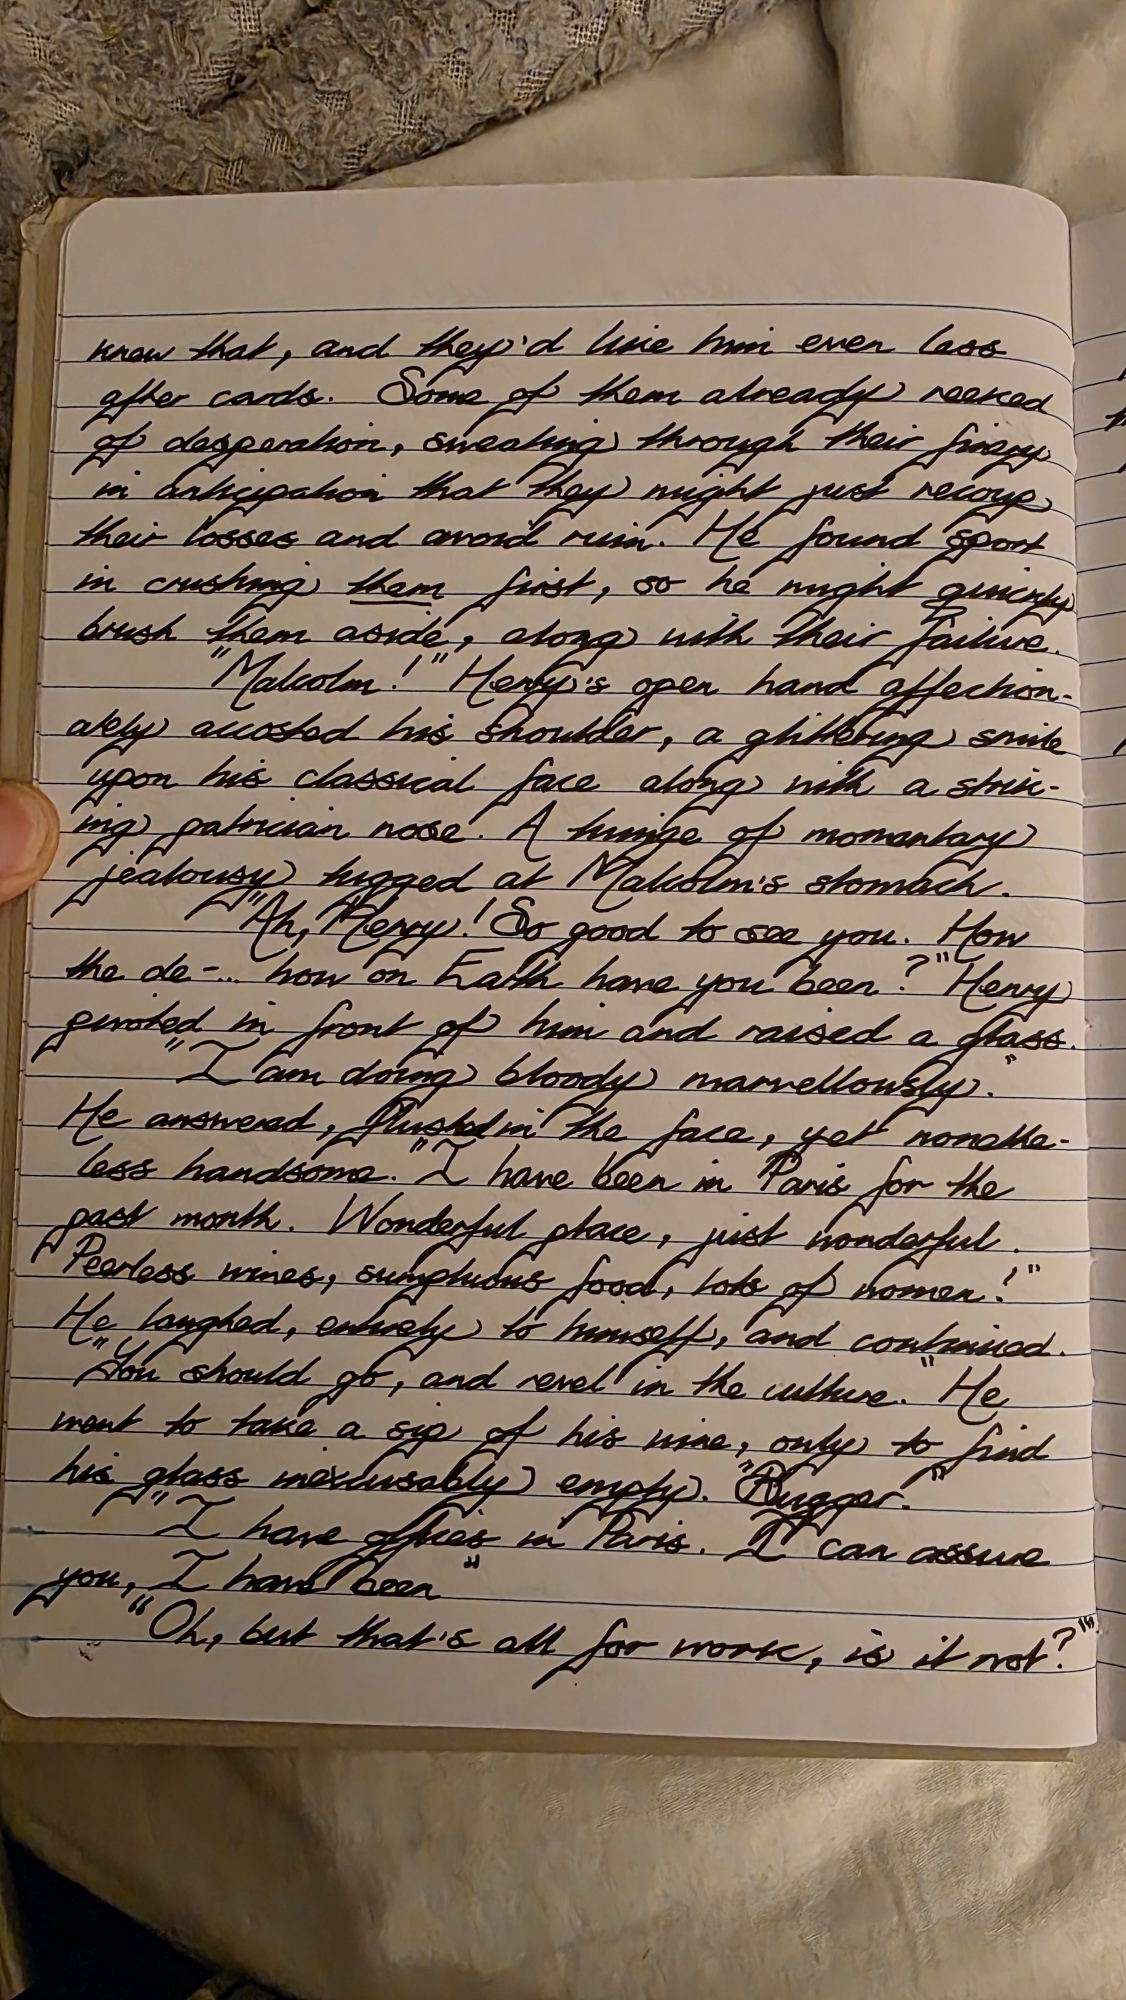 knew that, and they'd like him even less
after cards. Some of them already reeked
of desperation, sweating through their finery
in anticipation that they might just recoup
their losses and avoid ruin. He found sport
in crushing them first, so he might quickly
brush them aside, along with their failure.
"Malcolm!" Henry's open hand affection-
ately accosted his shoulder, a glittering smile
upon his classical face along with a strik-
ing patrician nose. A twinge of momentary
jealousy tugged at Malcolm's stomach.
"Ah, Henry! So good to see you. How
the de-... how on Earth have you been?" Henry
pivoted in front of him and raised a glass.
"I am doing bloody marvellously."
He answered, flushed in the face, yet nonethe-
less handsome. "I have been in Paris for the
past month. Wonderful place, just wonderful.
Peerless wines, sumptuous food, lots of women!"
He laughed, entirely to himself, and continued.
"You should go, and revel in the culture." He
went to take a sip of his wine, only to find
his glass inexcusably empty. "Bugger."
"I have offices in Paris. I can assure
you, I have been"
"Oh, but that's all for work, is it not?"